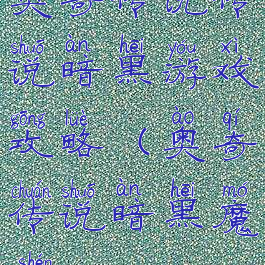 奥奇传说传
shuō àn hēi yóu xì
说暗黑游戏
gōng lüè ( ào qí
攻略（奥奇
chuán shuō àn hēi mó
传说暗黑魔
shén